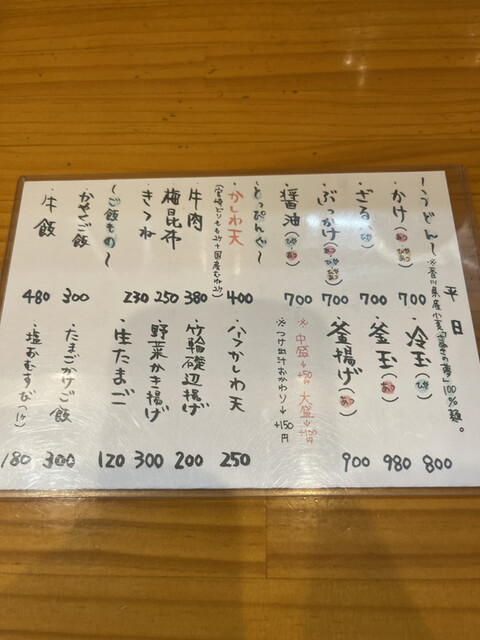 平日
〜うどん〜 ※香川県産小麦「さぬきの夢」100%麺。
・かけ(あつ・ひや) 700
・ざる(ひや) 700
・ぶっかけ(あつ・ひや) 700
・醤油(ひや) 700
・冷玉(ひや) 800
・釜玉(あつ) 980
・釜揚げ(あつ) 900
※中盛→+50 大盛→+100円
※つけ出汁おかわり→+150円
〜とっぴんぐ〜
・かしわ天 400
(宮崎どりもも2ケ+国産むね2ケ)
・牛肉 380
・梅昆布 250
・きつね 230
・ハーフかしわ天 250
・竹輪磯辺揚げ 200
・野菜かき揚げ 300
・生たまご 120
〜ご飯もの〜
・かやくご飯 300
・牛飯 480
・たまごかけご飯 300
・塩おむすび(1ケ) 180